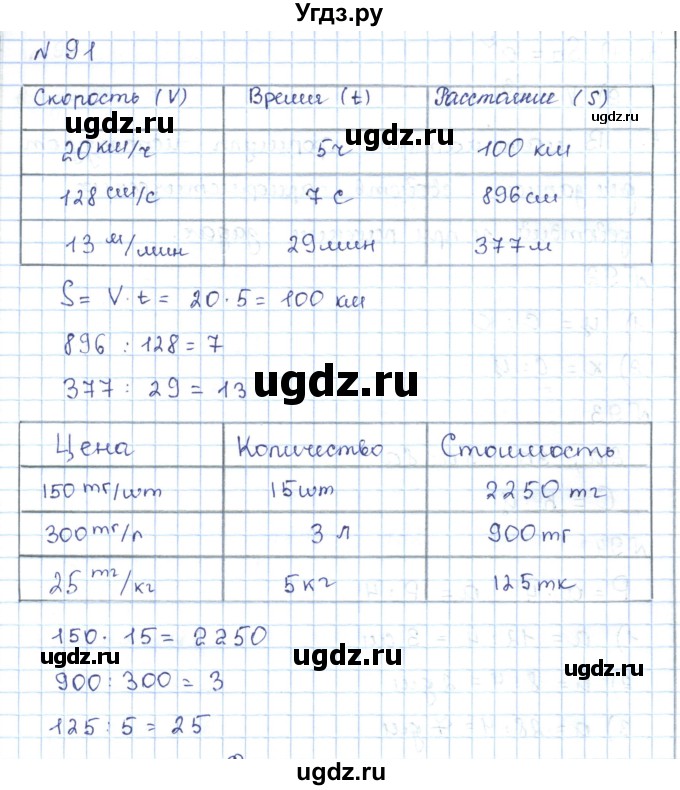 Угдз.ру
N 91
Скорость (V) Время (t) Расстояние (S)
ugdz.ru ugdz.ru ugdz.ru
20 км/ч 5ч 100 км
128 см/с 7 с 896 см
13 м/мин 29 мин 377 м
S = V · t = 20 · 5 = 100 км
896 : 128 = 7
377 : 29 = 13
ugdz.ru
Цена Количество Стоимость
150 тг/шт 15 шт 2250 тг
ugdz.ru
300 тг/л 3 л 900 тг
25 тг/кг 5 кг 125 тк
150 · 15 = 2250
ugdz.ru ugdz.ru ugdz.ru
900 : 300 = 3
125 : 5 = 25
ugdz.ru